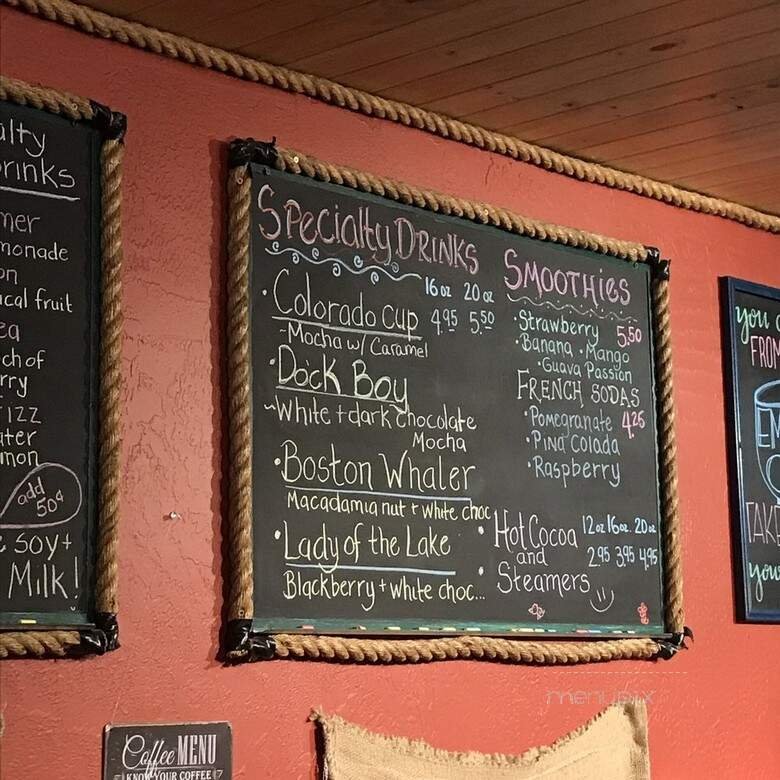 rinks
monade
fruit
add
50¢
soy +
Milk!
Specialty Drinks
16 oz 20 oz
• Colorado Cup 4.95 5.50
~Mocha w/ Caramel
• Dock Boy
~White + dark chocolate
Mocha
• Boston Whaler
Macadamia nut + white choc
• Lady of the Lake
Blackberry + white choc...
Smoothies
• Strawberry 5.50
• Banana • Mango
• Guava Passion
French Sodas
• Pomegranate 4.25
• Pina Colada
• Raspberry
• Hot Cocoa 12 oz 16 oz 20 oz
and 2.95 3.95 4.95
• Steamers
you
FROM
TAKE
your
Coffee MENU
KNOW YOUR COFFEE
menupix